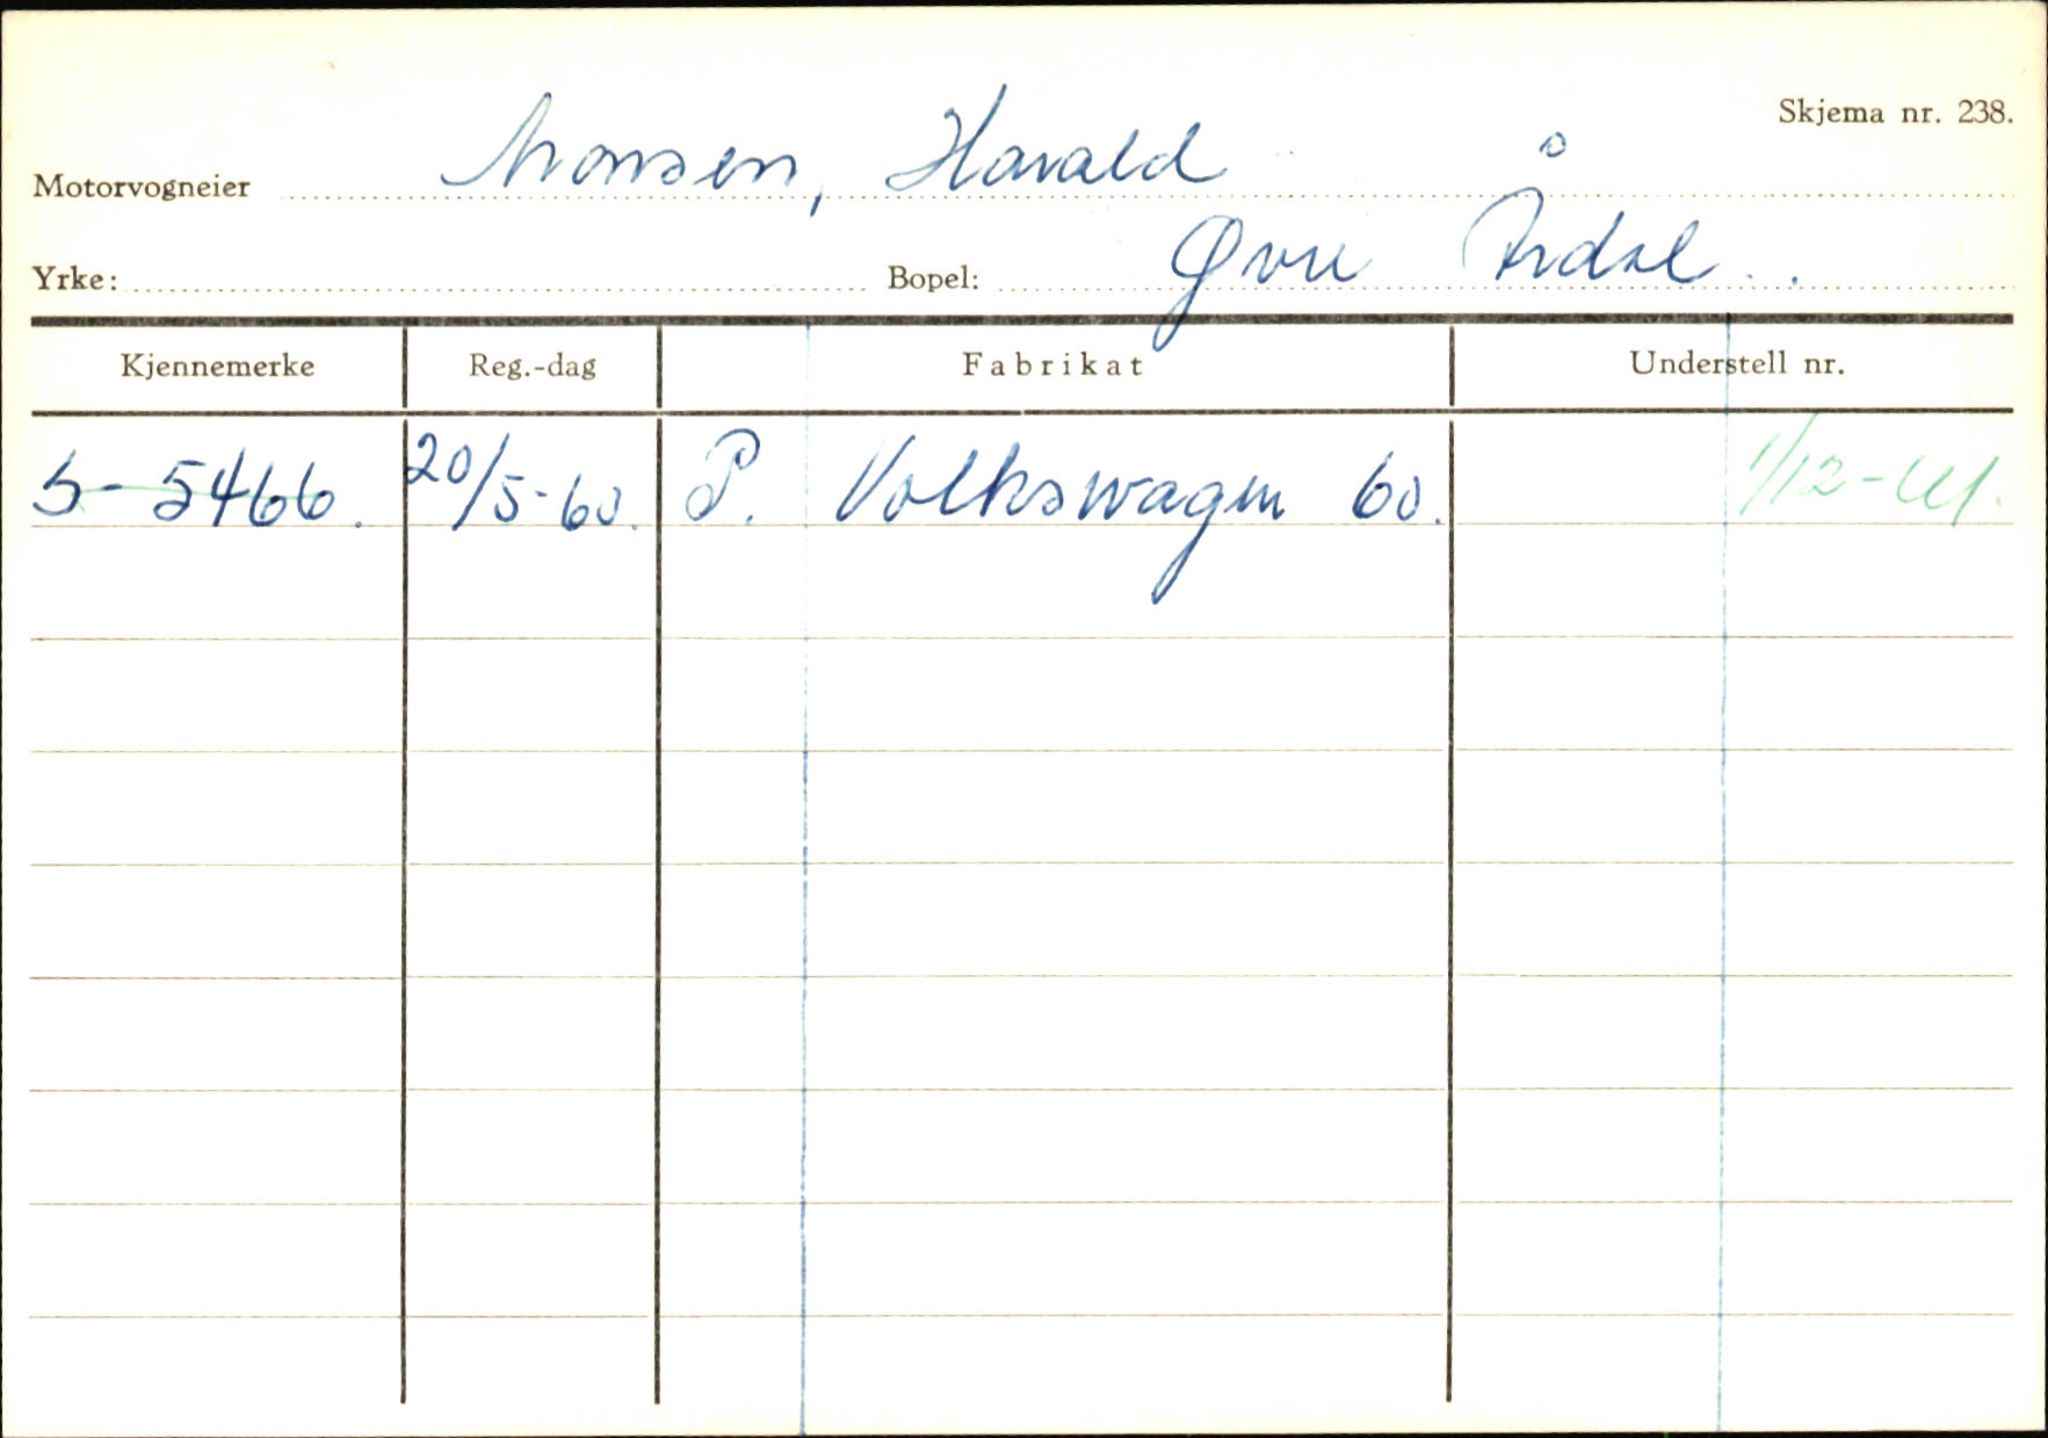 Skjema nr. 238.
Motorvogneier Monsen, Harald
Yrke: Bopel: Øvre Årdal
Kjennemerke Reg.-dag Fabrikat Understell nr.
S-5466. 20/5-60. P. Volkswagen 60. 1/12-61.